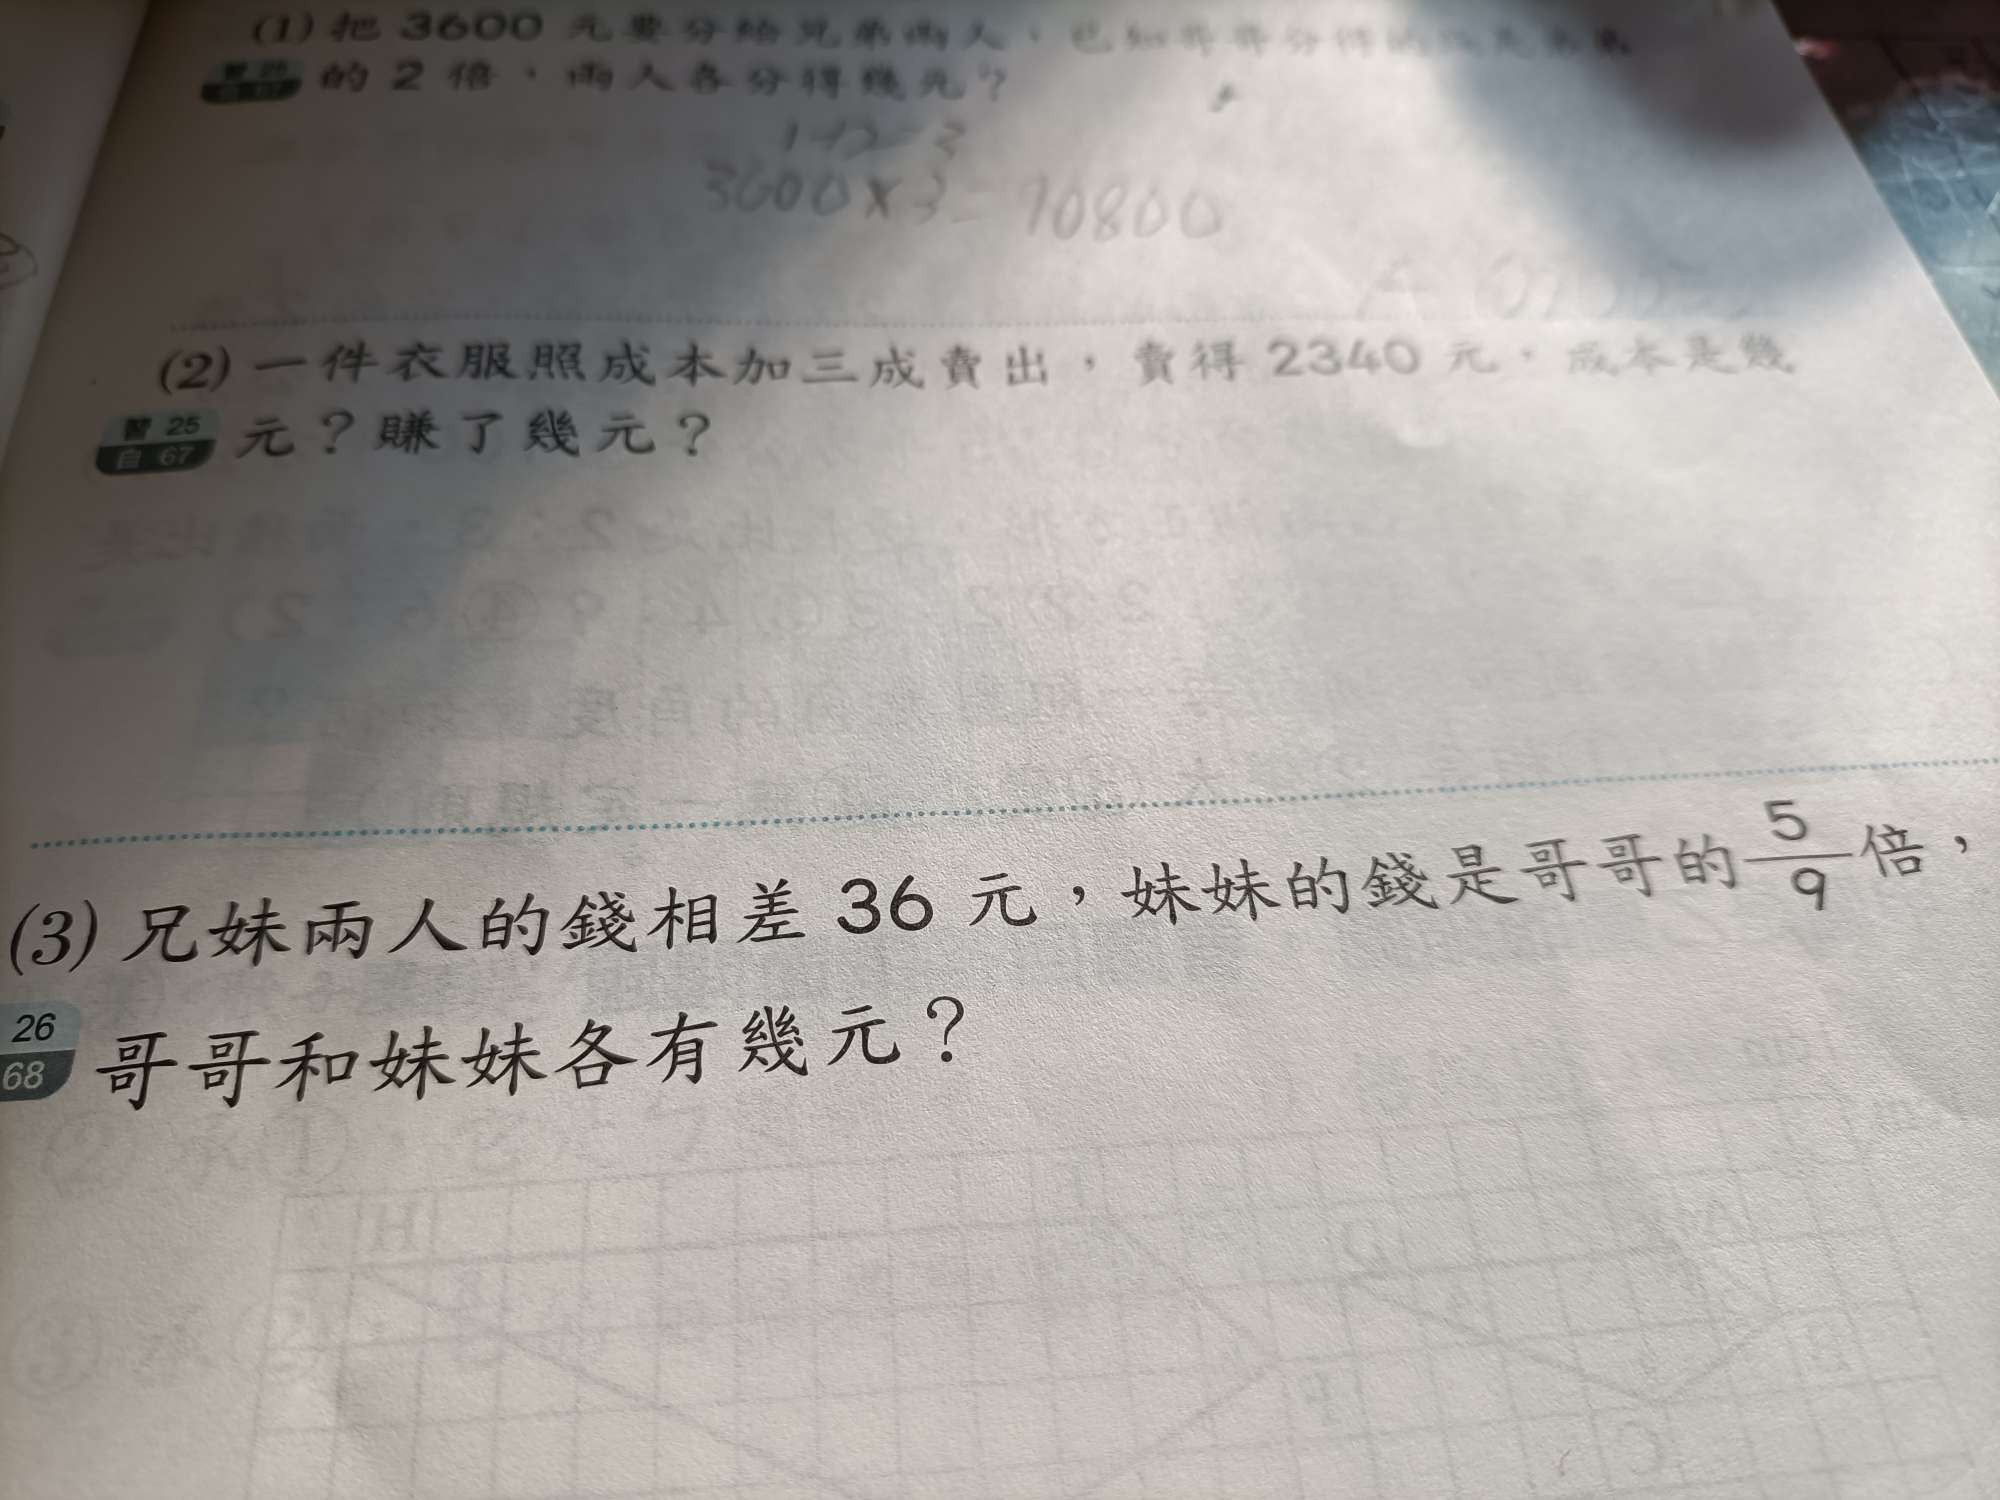 (1) 把 3600 元要分給兄弟兩人，已知哥哥分得的錢是弟弟
的 2 倍，兩人各分得幾元？
1+2=3
3600×3=10800
(2) 一件衣服照成本加三成賣出，賣得 2340 元，成本是幾
習 25
自 67
元？賺了幾元？
(3) 兄妹兩人的錢相差 36 元，妹妹的錢是哥哥的 5/9 倍，
26
68
哥哥和妹妹各有幾元？